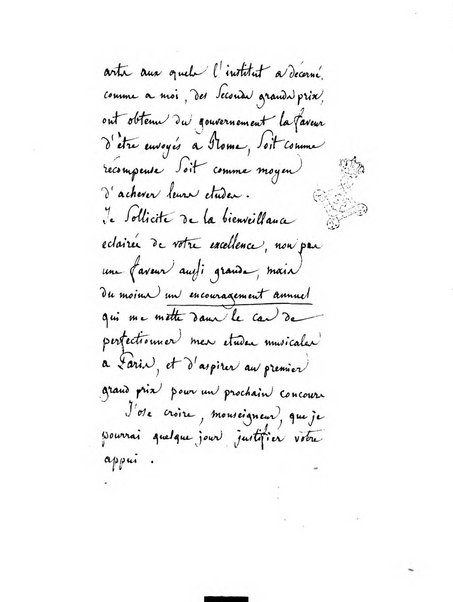 arts aux quels l'institut a décerné,
comme a moi, des Seconds grands prix,
ont obtenu du gouvernement la faveur
d'être envoyés à Rome, Soit comme
récompense Soit comme moyen
d'achever leurs etudes.
Je Sollicite de la bienveillance
eclairée de votre excellence, non pas
une faveur aussi grande, mais
du moins un encouragement annuel
qui me mette dans le cas de
perfectionner mes etudes musicales
a Paris, et d'aspirer au premier
grand prix pour un prochain concours
J'ose croire, monseigneur, que je
pourrai quelque jour justifier votre
appui.